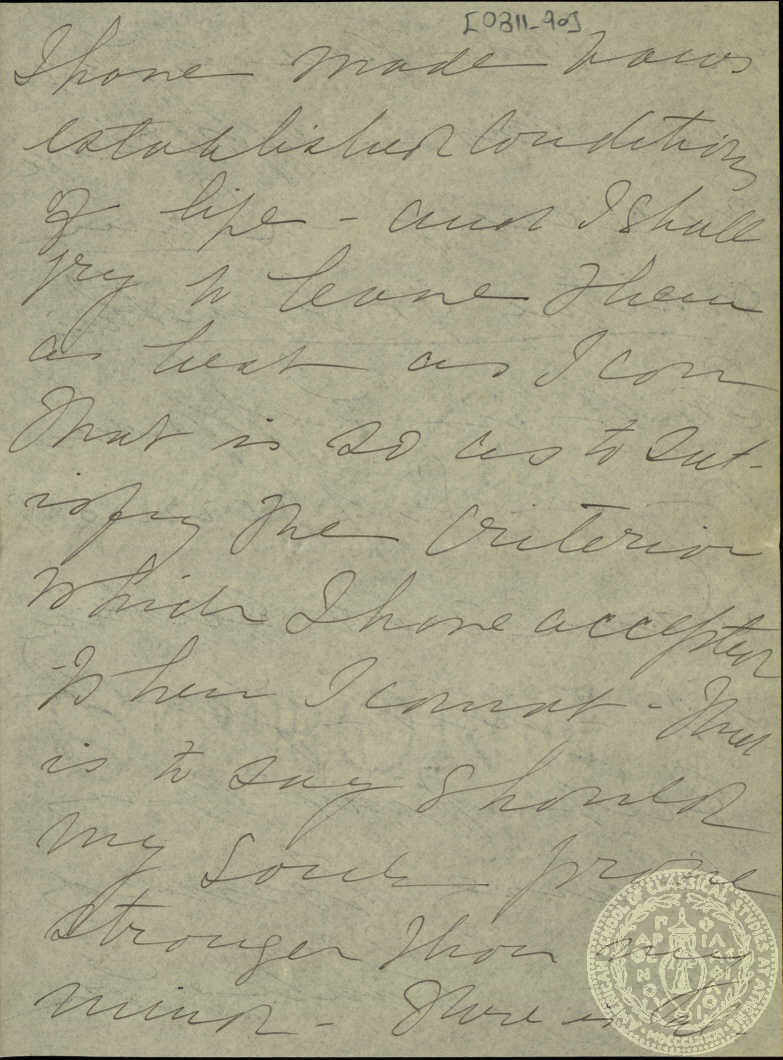 [0311-90]
I have made vows
established conditions
of life - and I shall
try to leave them
as best as I can
That is so as to sat-
isfy the criterion
which I have accepted
When I cannot - that
is to say should
my soul prove
stronger than my
mind - There is
AMERICAN SCHOOL OF CLASSICAL STUDIES AT ATHENS
MDCCCLXXXI